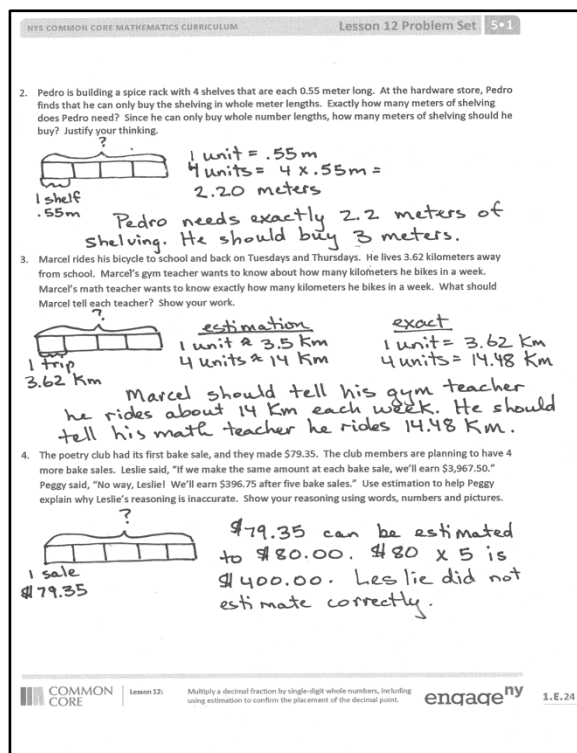 NYS COMMON CORE MATHEMATICS CURRICULUM Lesson 12 Problem Set 5•1
2. Pedro is building a spice rack with 4 shelves that are each 0.55 meter long. At the hardware store, Pedro
finds that he can only buy the shelving in whole meter lengths. Exactly how many meters of shelving
does Pedro need? Since he can only buy whole number lengths, how many meters of shelving should he
buy? Justify your thinking.
?
1 unit = .55 m
4 units = 4 x .55m =
2.20 meters
1 shelf
.55m
Pedro needs exactly 2.2 meters of
shelving. He should buy 3 meters.
3. Marcel rides his bicycle to school and back on Tuesdays and Thursdays. He lives 3.62 kilometers away
from school. Marcel's gym teacher wants to know about how many kilometers he bikes in a week.
Marcel's math teacher wants to know exactly how many kilometers he bikes in a week. What should
Marcel tell each teacher? Show your work.
?
1 trip
3.62 Km
estimation
1 unit ≈ 3.5 Km
4 units ≈ 14 Km
exact
1 unit = 3.62 Km
4 units = 14.48 Km
Marcel should tell his gym teacher
he rides about 14 Km each week. He should
tell his math teacher he rides 14.48 Km.
4. The poetry club had its first bake sale, and they made $79.35. The club members are planning to have 4
more bake sales. Leslie said, "If we make the same amount at each bake sale, we'll earn $3,967.50."
Peggy said, "No way, Leslie! We'll earn $396.75 after five bake sales." Use estimation to help Peggy
explain why Leslie's reasoning is inaccurate. Show your reasoning using words, numbers and pictures.
?
1 sale
$79.35
$79.35 can be estimated
to $80.00. $80 x 5 is
$400.00. Leslie did not
estimate correctly.
COMMON
CORE
Lesson 12:
Multiply a decimal fraction by single-digit whole numbers, including
using estimation to confirm the placement of the decimal point.
engage ny
1.E.24